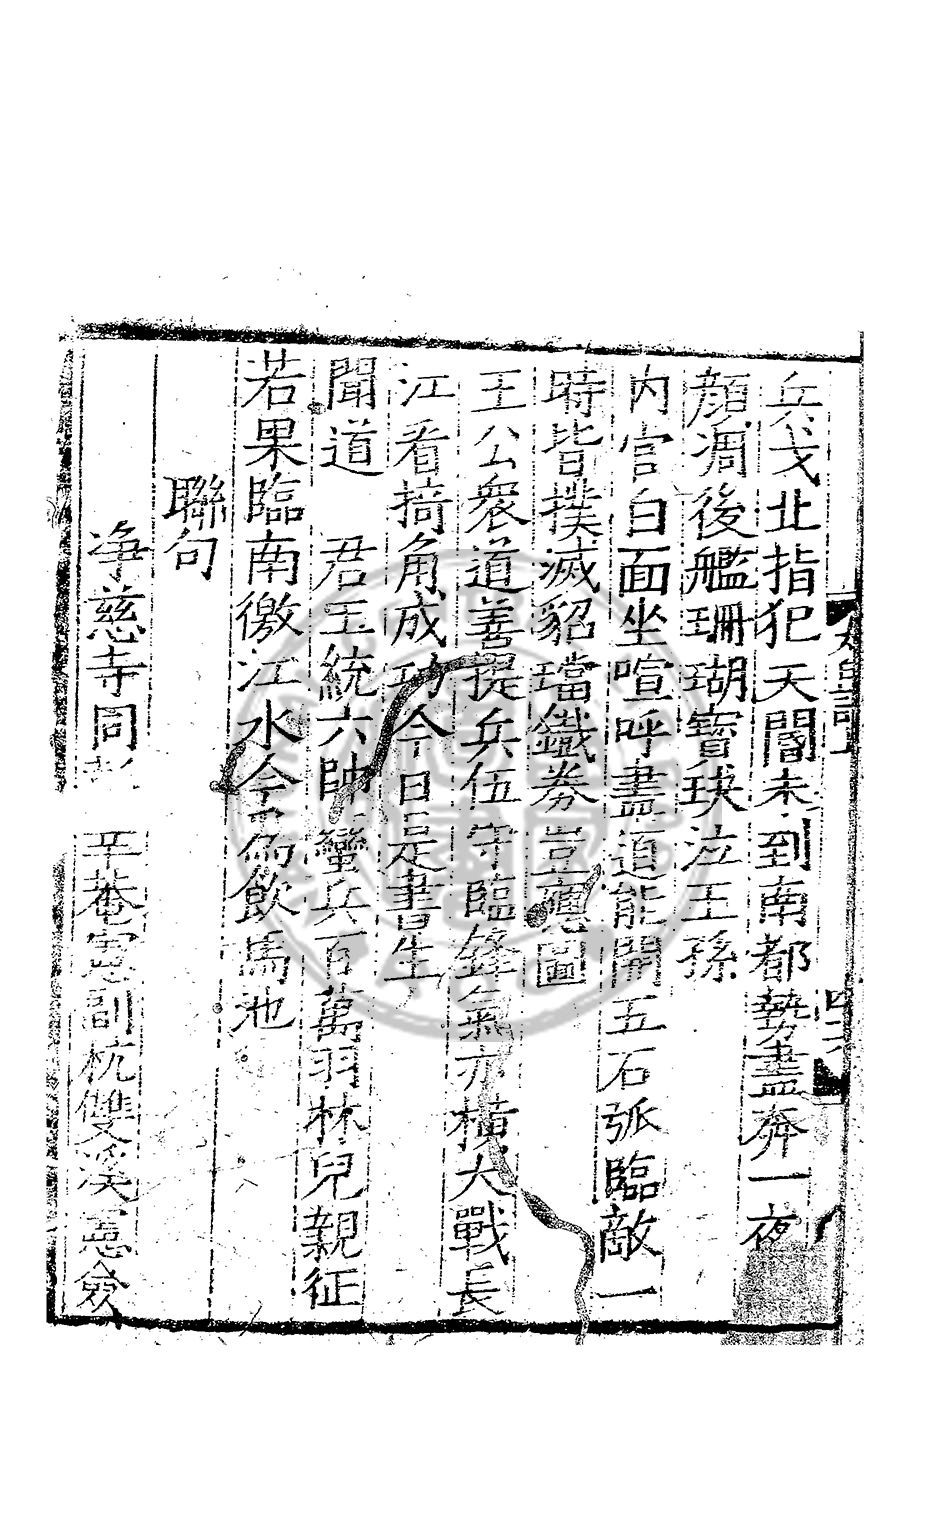 兵戈北指犯天閽未到南都勢盡奔一夜
顏凋後艦珊瑚寶玦泣王孫
内官白面坐喧呼盡道能開五石弧臨敵一
時皆撲滅貂璫鐵券豈圖
王公衆道善提兵伍守臨鋒氣亦橫大戰長
江看掎角成功今日是書生
聞道 君王統六帥蠻兵百萬羽林兒親征
若果臨南徼江水今爲飲馬池
聯句
净慈寺同 平菴憲副杭雙溪憲僉
四六